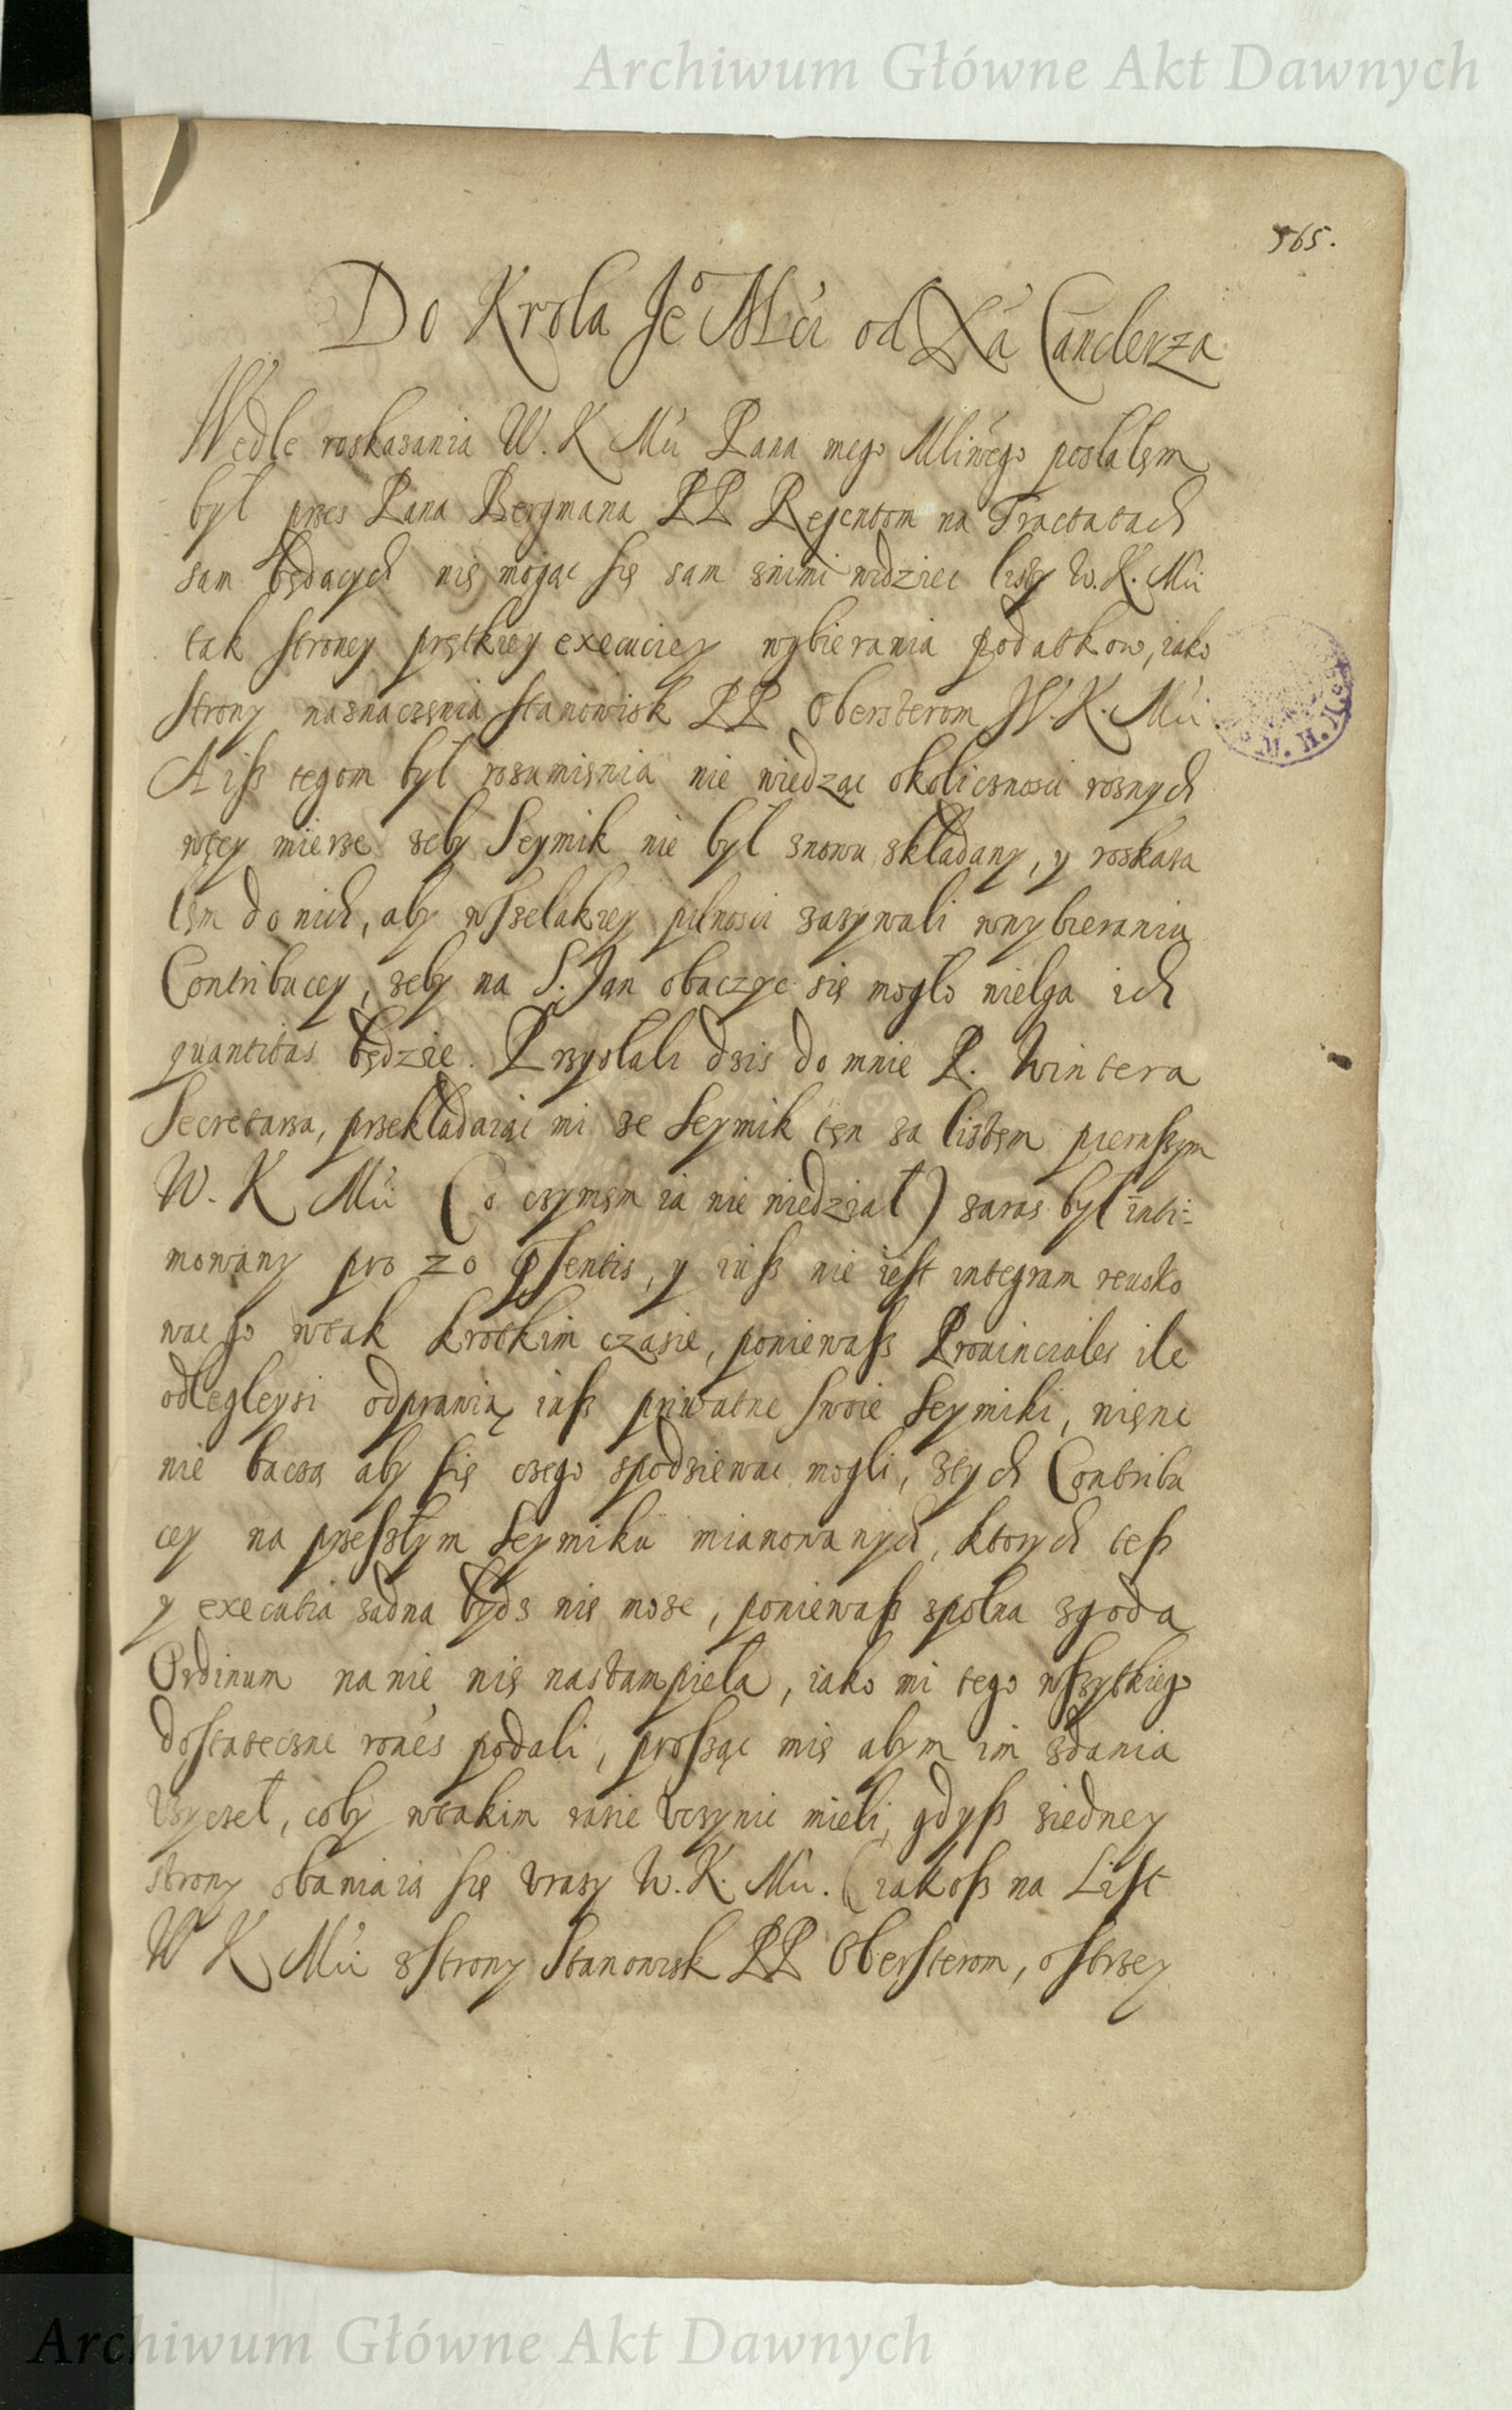 Archiwum Główne Akt Dawnych
565.
Do Krola Je° Mći od Xá Canclerza
Wedle roskasania W. K Mći Pana mego Mliwego posłałęm
był przes Pana Bergmana PP Rejentom na Tractatach
sam będących nię mogąc się sam snimi widziec listy W. K. Mći
tak strony prętkiey execuciey wybierania podatkow, iako
strony nasnaczęnia stanowisk PP Obersterom W. K. Mći
A iß tegom był rosumięnia nie wiedząc okolicsnosci rosnych
wtey mierse seby Seymik nie był snowu składany, y roskasa
lęm do nich, aby wsselakiey pilnosci sasywali wwybieraniu
Contribucey, seby na S. Jan obaczyc się mogło wielga ich
quantitas będzie. Przysłali dsis do mnie P. Wintera
Secretarsa, przekładaiąc mi se Seymik tęn sa listęm pierwßym
W. K Mći (o csymęm ia nie wiedział) saras był inti-
mowany pro 20 psentis, y iuß nie iest integram reuoko
wac go wtak krotkim czasie, poniewaß Prouinciales ile
odlegleysi odprawią iuß priwatne swoie Seymiki, więne
nie bacsą aby się csego spodsiewac mogli, stych Contribu
cey na przeßłym Seymiku mianowanych, ktorych teß
y executia sadna byds nię mose, poniewaß spolna sgoda
Ordinum na nie nię nastampieła, iako mi tego wßytkiego
dostatecsne rones podali, proßąc mię abym im sdania
Vsyczeł, coby wtakim rasie Vcsynic mieli, gdyß siedney
strony obawiaią się Vrasy W. K. Mći. (iakoß na List
W K Mći sstrony Stanowisk PP Obersterom, ostrsey
Archiwum Główne Akt Dawnych